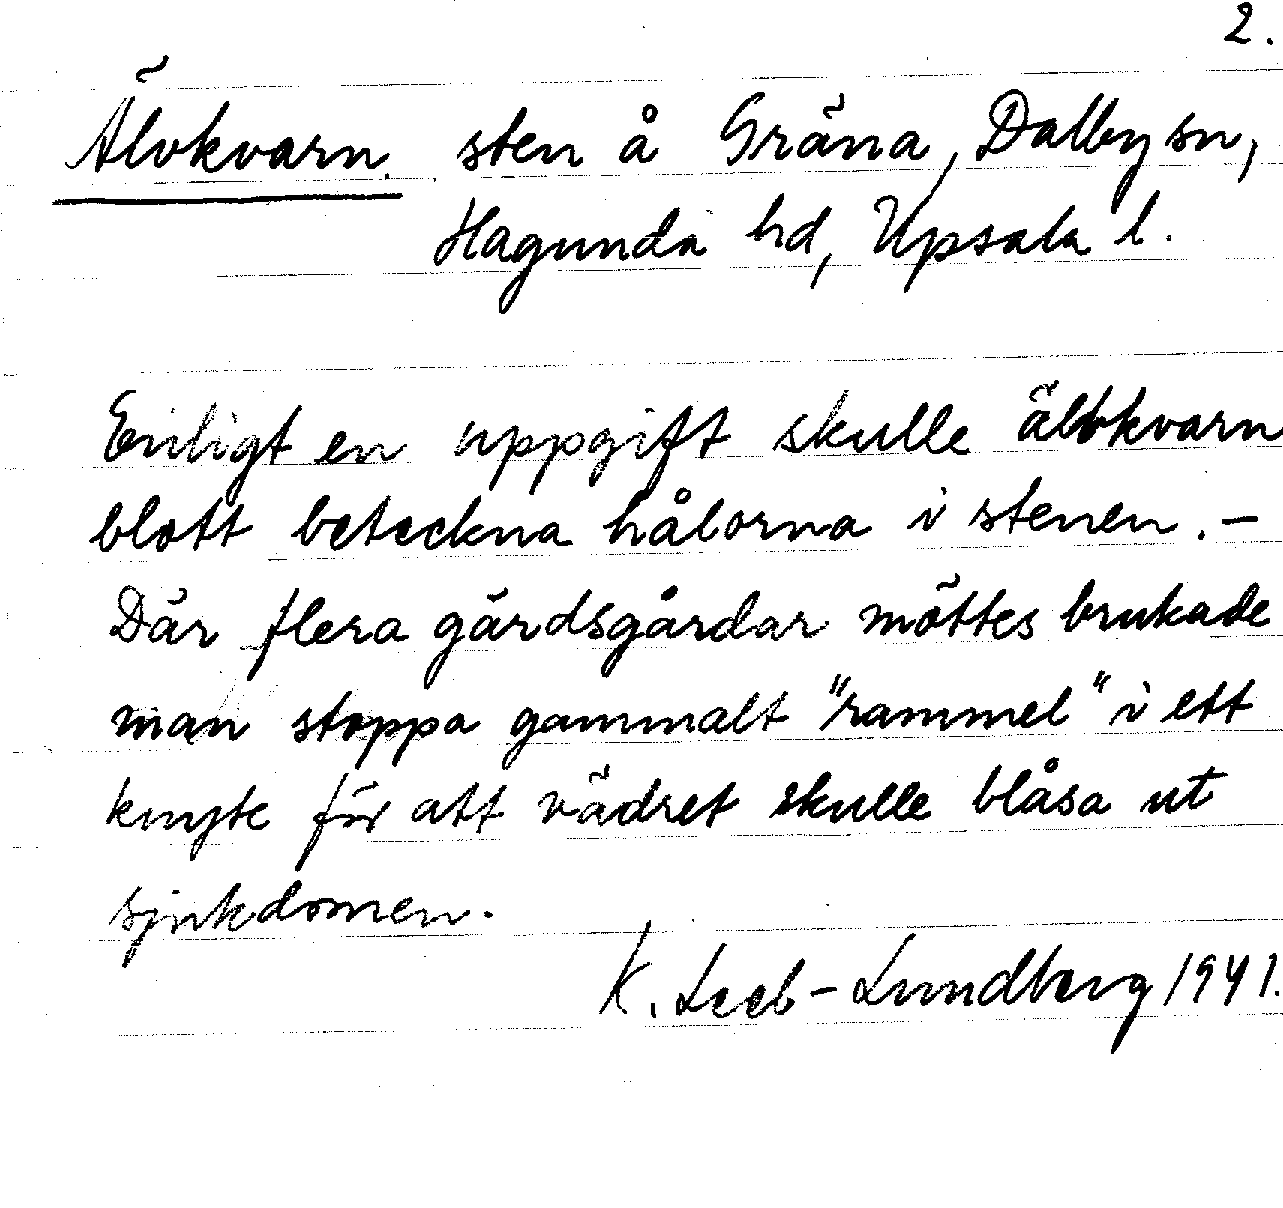 2.
Älvkvarn. sten å Gräna, Dalby sn,
Hagunda hd, Upsala l.
Enligt en uppgift skulle älvkvarn
blott beteckna hålorna i stenen. –
Där flera gärdsgårdar möttes brukade
man stoppa gammalt "rammel" i ett
knyte för att vädret skulle blåsa ut
sjukdomen.
K. Leeb-Lundberg 1941.